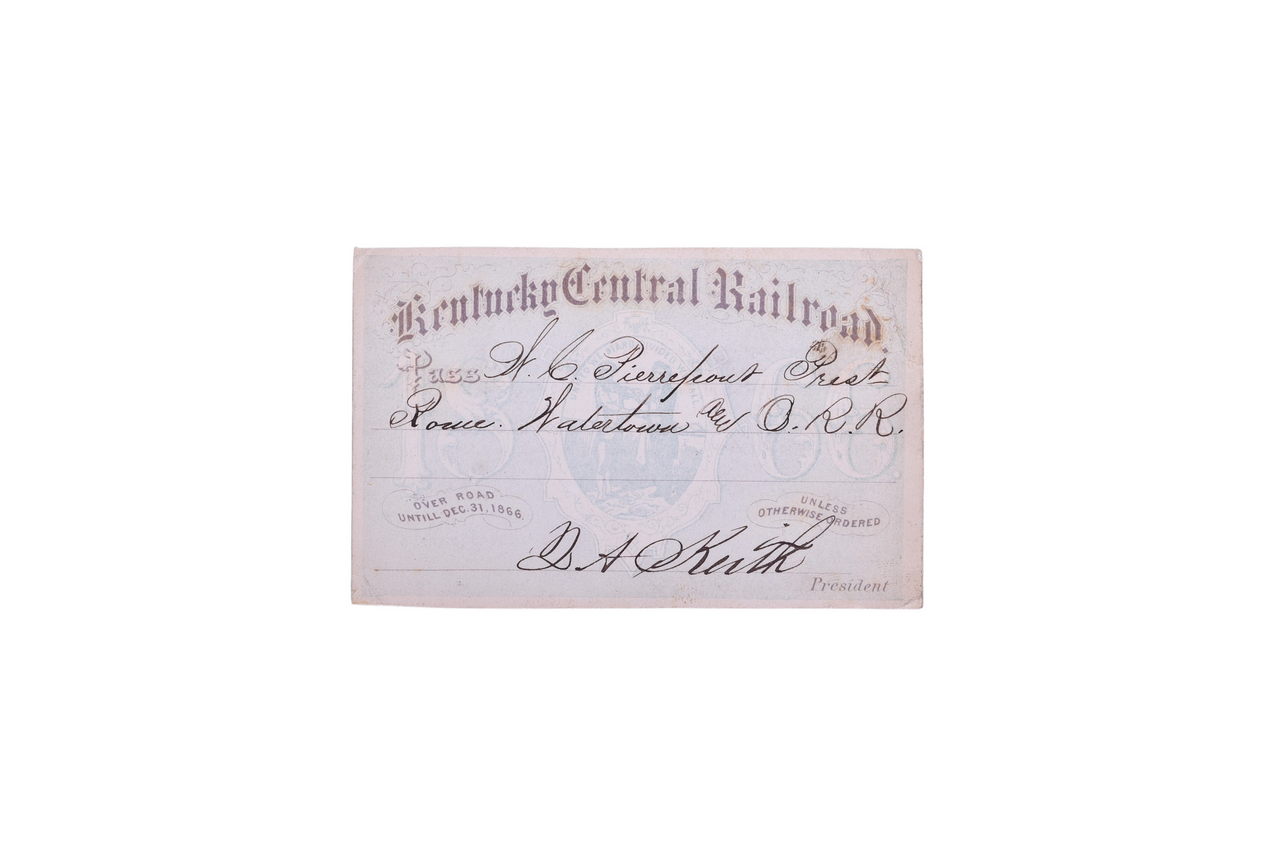 Kentucky Central Railroad.
Pass W. C. Pierrepont Prest
Rome. Watertown and O. R. R.
1866.
OVER ROAD
UNTILL DEC. 31, 1866.
UNLESS
OTHERWISE ORDERED
D A Keith
President